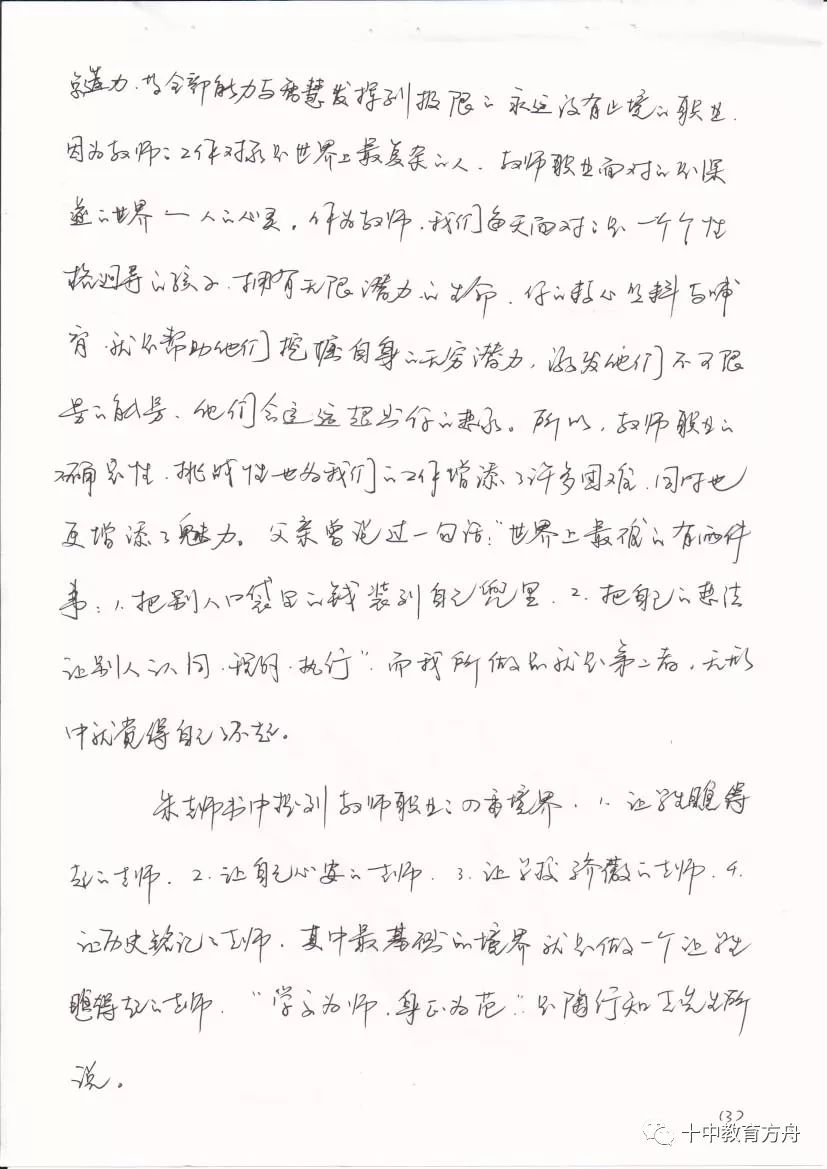 造力、将全部能力与智慧发挥到极限的永远没有止境的职业.
因为教师的工作对象是世界上最复杂的人. 教师职业面对的是深
邃的世界—人的心灵。作为教师,我们每天面对的是一个个性
格迥异的孩子,拥有无限潜力的生命,你的精心照料与哺
育,就是帮助他们挖掘自身的无穷潜力,激发他们不可限
量的能量、他们会远远超出你的想象。所以,教师职业的
不确定性,挑战性也为我们的工作增添了许多困难,同时也
更增添了魅力。父亲曾说过一句话:"世界上最难的有两件
事:1.把别人口袋里的钱装到自己兜里. 2.把自己的想法
让别人认同、执行" 而我所做的就是第二者,无形
中就觉得自己了不起。
朱老师书中提到教师职业的四重境界. 1. 让学生瞧得
起的老师. 2.让自己心安的老师. 3.让学校骄傲的老师. 4.
让历史铭记的老师. 其中最基础的境界就是做一个让学生
瞧得起的老师. "学为师,身正为范" 是陶行知先生所
说。
(3)
十中教育方舟